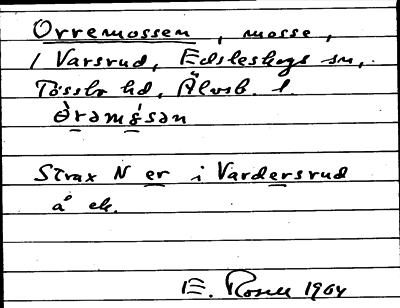 Orremossen, mosse,
i Varsrud, Edsleskogs sn,
Tössbo hd, Älvsb. l.
Òrəmɞ́sən
Strax N er i Vardersrud
å ek.
E. Rosell 1964